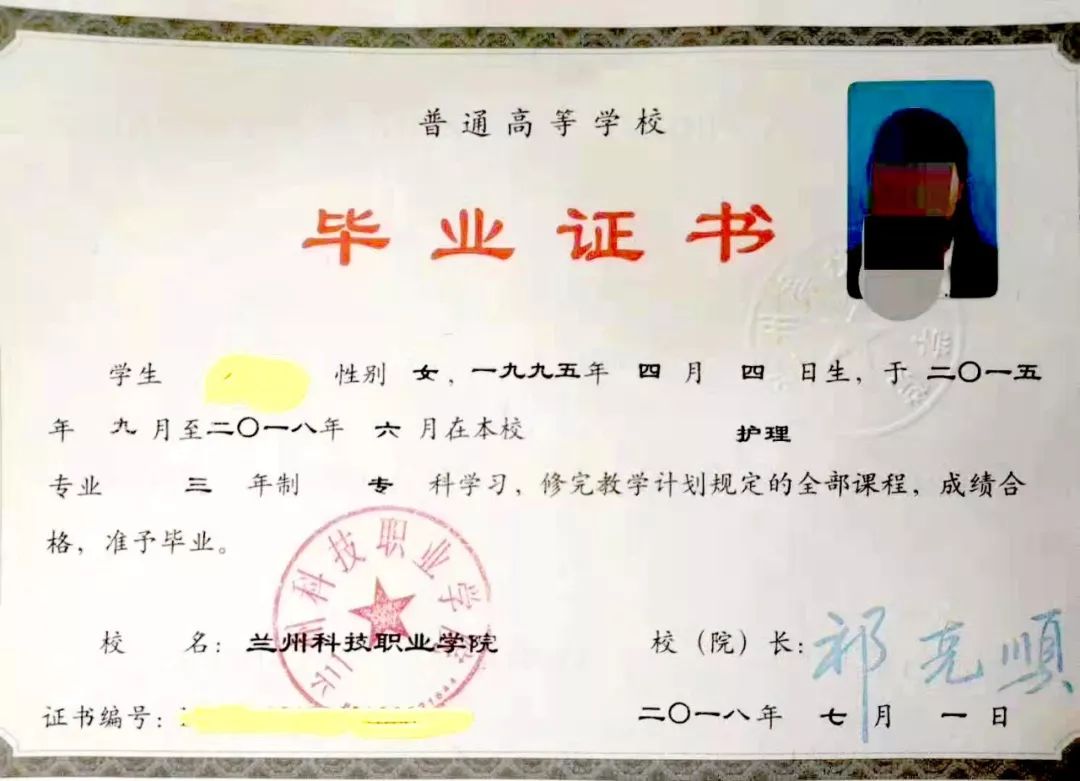 普通高等学校
毕业证书
学生 性别 女，一九九五年 四 月 四 日生，于 二〇一五
年 九 月至二〇一八年 六 月在本校 护理
专业 三 年制 专 科学习，修完教学计划规定的全部课程，成绩合
格，准予毕业。
兰州科技职业学院
校 名：兰州科技职业学院 校（院）长：
证书编号： 二〇一八年 七 月 一 日